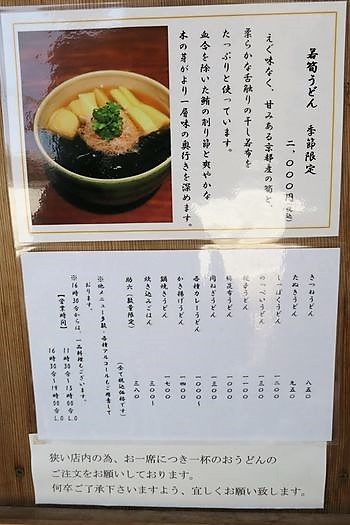 若筍うどん 季節限定
二、000円(税込)
えぐ味なく、甘みある京都産の筍と、
柔らかな舌触りの干し若布を
たっぷりと使っています。
血合を除いた鮪の削り節と爽やかな
木の芽がより一層味の奥行きを深めます。
きつねうどん 八五0
たぬきうどん 九五0
しっぽくうどん
のっぺいうどん
肉ねぎうどん 一三00
各種カレーうどん 一000〜
かき揚げうどん 一四00
鍋焼きうどん 一七00
炊き込みごはん 三00〜
助六(数量限定) 三八0
(全て税込価格です)
※他メニュー多数・各種アルコールもご用意して
おります。
※16時30分からは、一品料理もございます。
【営業時間】 11時30分〜15時00分 L.O
16時30分〜19時00分 L.O
狭い店内の為、お一席につき一杯のおうどんの
ご注文をお願いしております。
何卒ご了承下さいますよう、宜しくお願い致します。